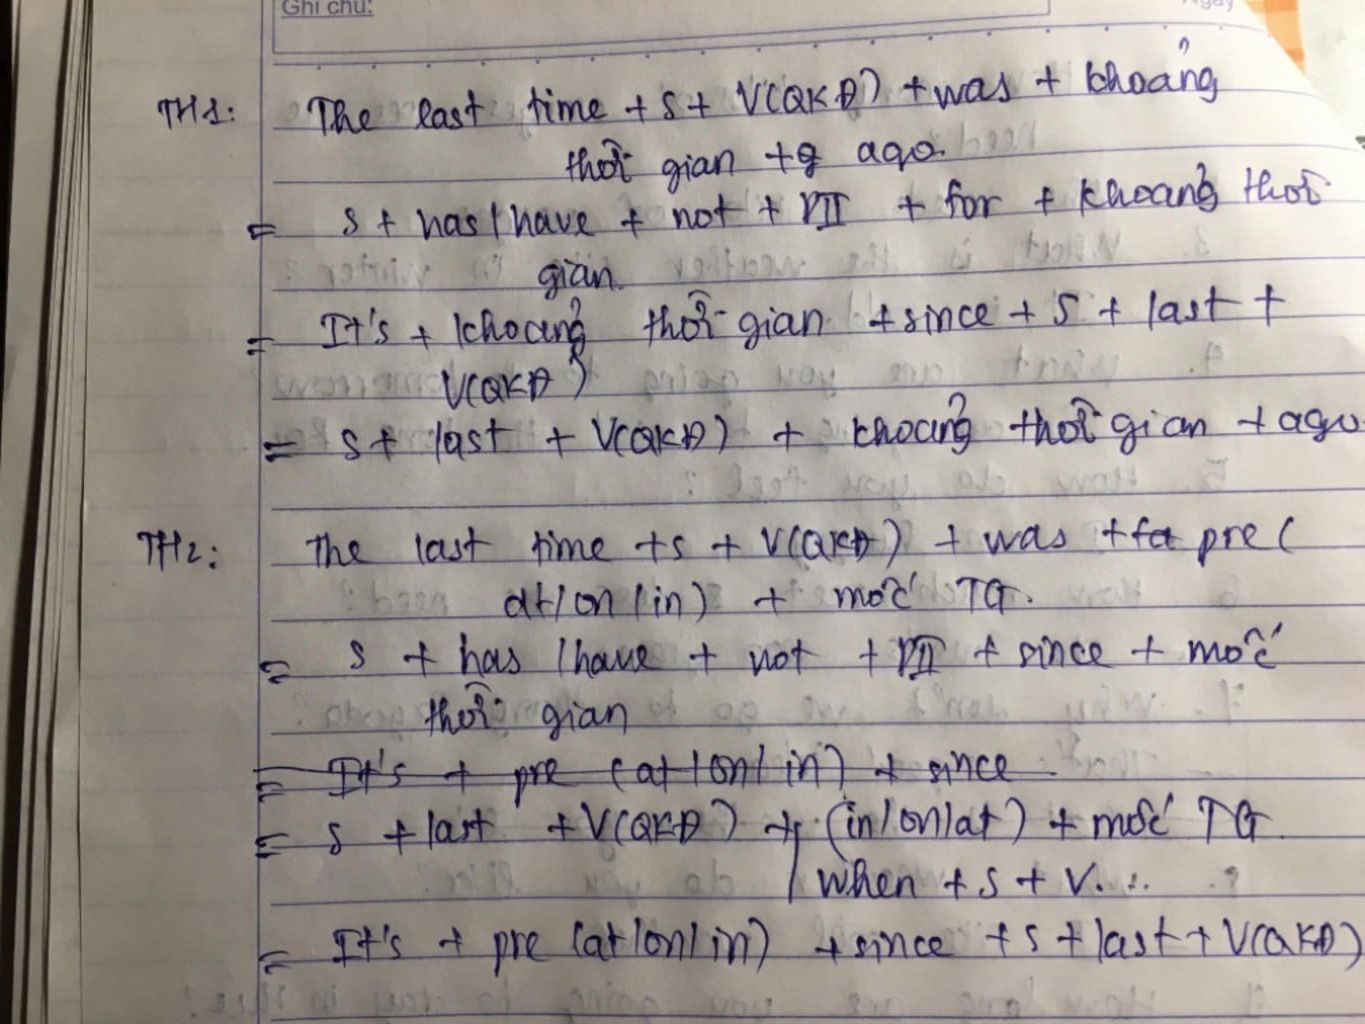 Ghi chú:
Ngày
TH1: The last time + S + V(QKĐ) + was + khoảng
thời gian + ago.
= S + has/have + not + VII + for + khoảng thời
gian.
= It's + khoảng thời gian + since + S + last +
V(QKĐ)
= S + last + V(QKĐ) + khoảng thời gian + ago
TH2: The last time + S + V(QKĐ) + was + pre (
at/on/in) + mốc TG.
= S + has/have + not + VII + since + mốc
thời gian
= It's + pre (at/on/in) + since
= S + last + V(QKĐ) + (in/on/at) + mốc TG
when + S + V...
= It's + pre (at/on/in) + since + S + last + V(QKĐ)